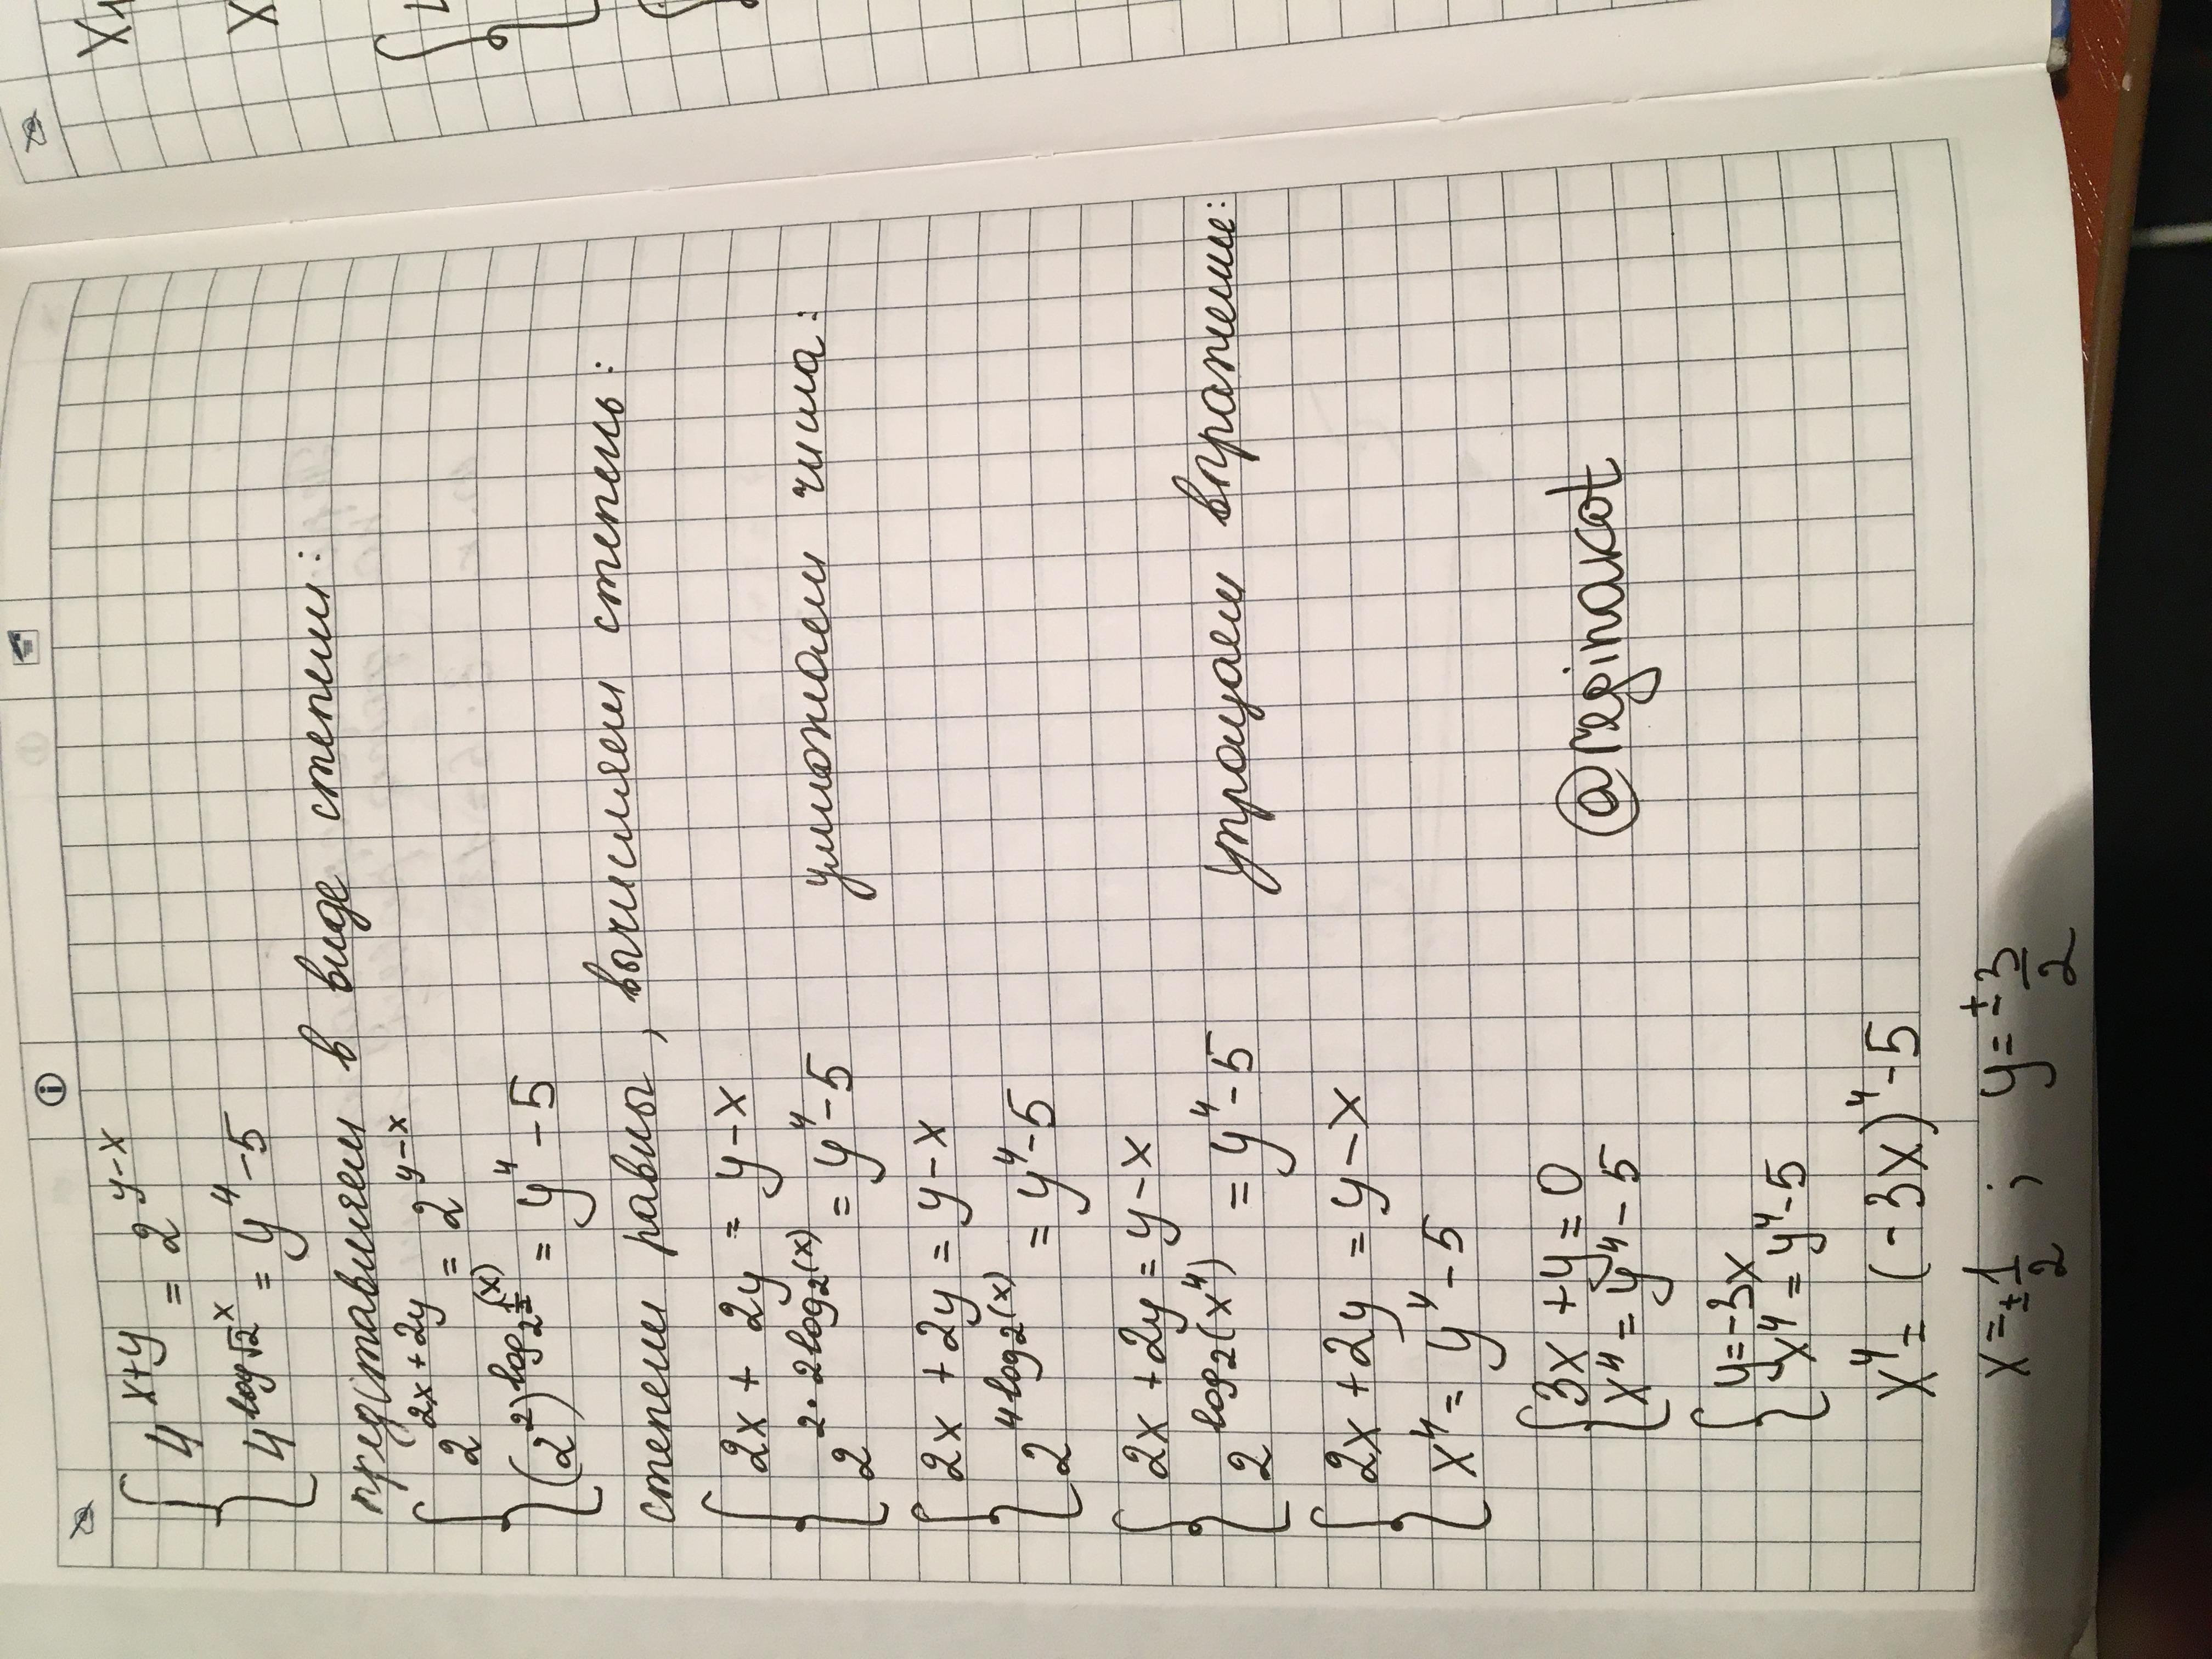 { 4^(x+y) = 2^(y-x)
4^(log_√2 x) = y^4 - 5
представляем в виде степени:
{ 2^(2x+2y) = 2^(y-x)
(2^2)^(log_(2^(1/2)) (x)) = y^4 - 5
степени равны, вычисляем степень:
{ 2x + 2y = y - x
2^(2·2log_2(x)) = y^4 - 5
умножаем числа:
{ 2x + 2y = y - x
2^(4log_2(x)) = y^4 - 5
{ 2x + 2y = y - x
2^(log_2(x^4)) = y^4 - 5
Упрощаем выражение:
{ 2x + 2y = y - x
x^4 = y^4 - 5
{ 3x + y = 0
x^4 = y^4 - 5
@reginakot
{ y = -3x
x^4 = y^4 - 5
x^4 = (-3x)^4 - 5
x = ± 1/2 ; y = ± 3/2